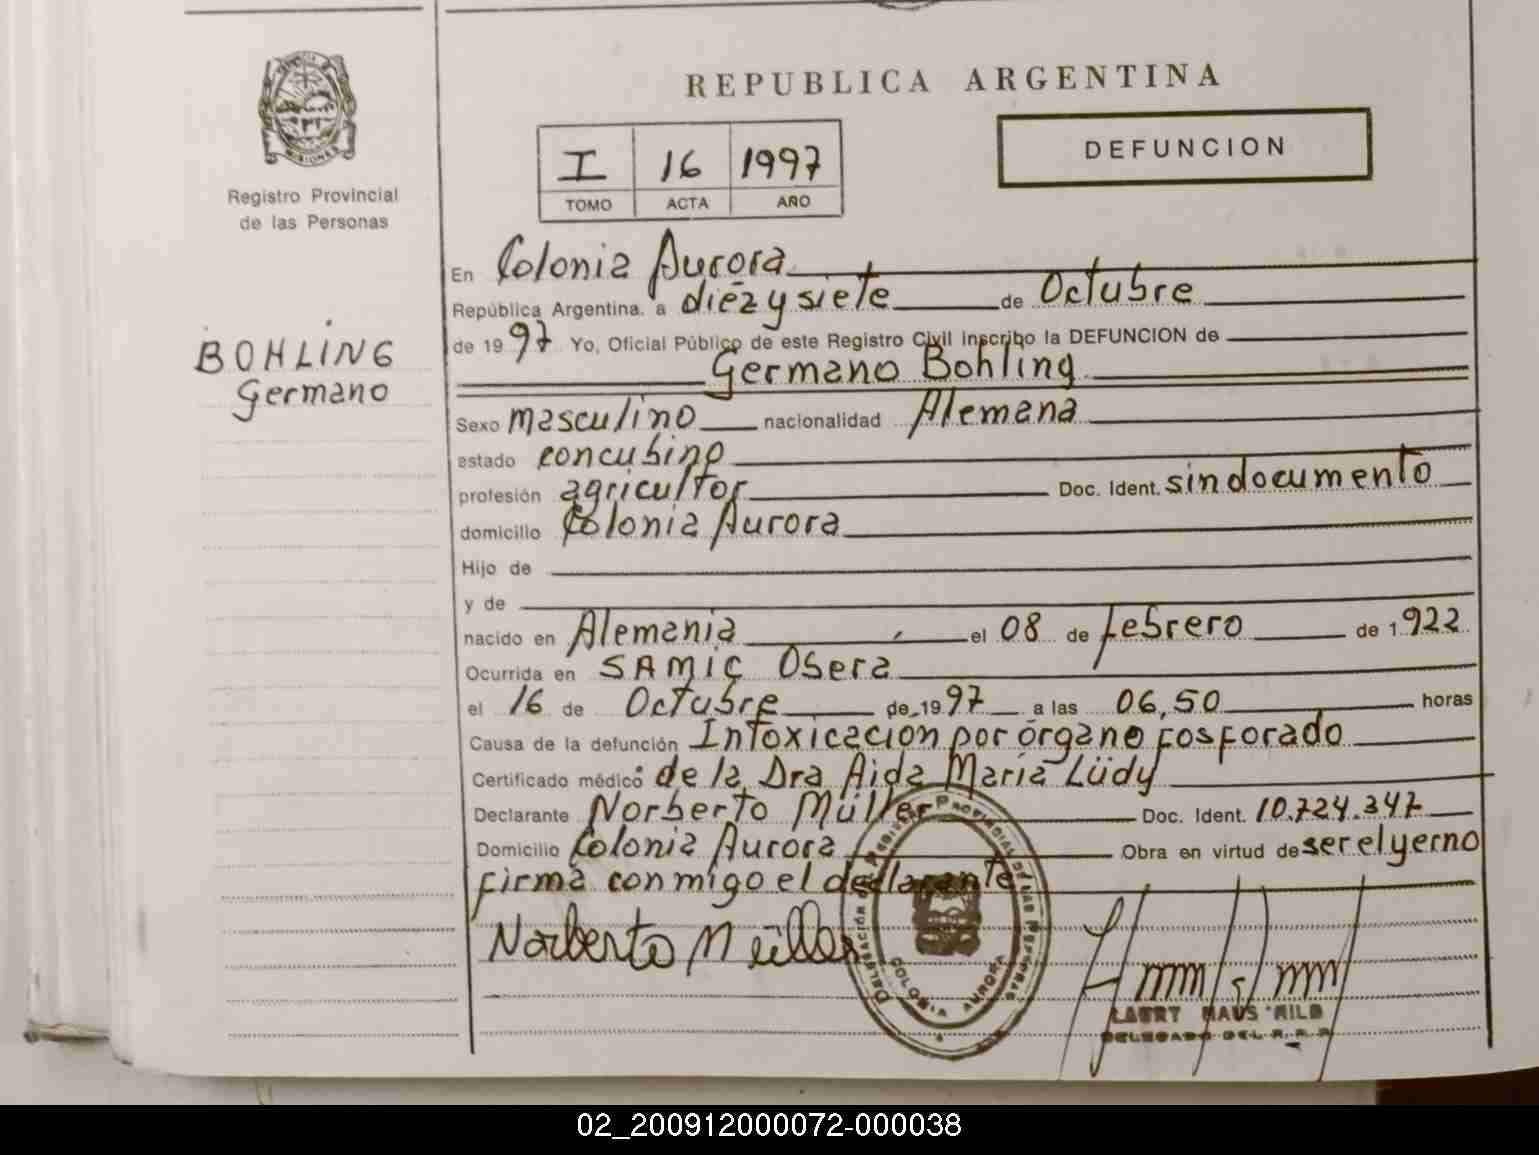 REPUBLICA ARGENTINA
MISIONES
Registro Provincial
de las Personas
I 16 1997
TOMO ACTA AÑO
DEFUNCION
BOHLING
Germano
En Colonia Aurora
República Argentina. a diez y siete de Octubre
de 1997 Yo, Oficial Público de este Registro Civil inscribo la DEFUNCION de
Germano Bohling
Sexo masculino nacionalidad Alemana
estado concubino
profesión agricultor Doc. Ident. sin documento
domicilio Colonia Aurora
Hijo de
y de
nacido en Alemania el 08 de febrero de 1.922
Ocurrida en SAMIC Obera
el 16 de Octubre de 1997 a las 06,50 horas
Causa de la defunción Intoxicacion por órgano fosforado
Certificado médico de la Dra Aida María Lüdy
Declarante Norberto Müller Doc. Ident. 10.724.347
Domicilio Colonia Aurora Obra en virtud de ser el yerno
firma conmigo el declarante
Norberto Müller
DELEGACIÓN REGISTRO PROVINCIAL DE LAS PERSONAS
COLONIA AURORA
DELEGADO DEL R.P.P.
02_200912000072-000038